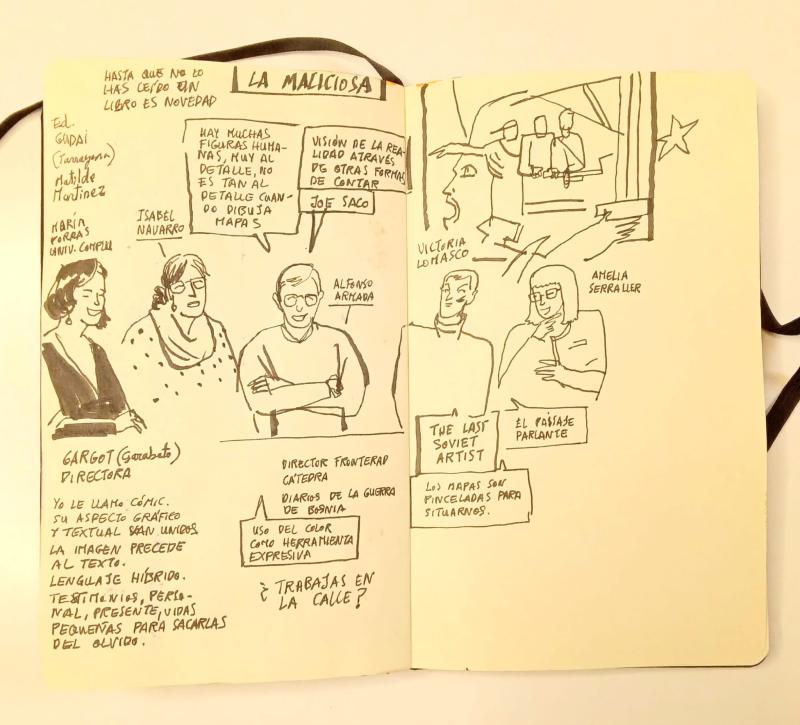 HASTA QUE NO LO
HAS LEÍDO UN
LIBRO ES NOVEDAD
LA MALICIOSA
Ed.
(Tarragona)
Matilde
Martínez
MARÍA
PORRAS
UNIV. COMPLU
ISABEL
NAVARRO
HAY MUCHAS
FIGURAS HUMA-
NAS, MUY AL
DETALLE, NO
ES TAN AL
DETALLE CUAN-
DO DIBUJA
MAPAS
VISIÓN DE LA REA-
LIDAD ATRAVÉS
DE OTRAS FORMAS
DE CONTAR
JOE SACO
ALFONSO
ARMADA
GARGOT (Garabato)
DIRECTORA
YO LE LLAMO CÓMIC.
SU ASPECTO GRÁFICO
Y TEXTUAL VAN UNIDOS
LA IMAGEN PRECEDE
AL TEXTO.
LENGUAJE HÍBRIDO.
TESTIMONIOS, PERSO-
NAL, PRESENTE, VIDAS
PEQUEÑAS PARA SACARLAS
DEL OLVIDO.
DIRECTOR FRONTERAD
CÁTEDRA
DIARIOS DE LA GUERRA
DE BOSNIA
USO DEL COLOR
COMO HERRAMIENTA
EXPRESIVA
¿TRABAJAS EN
LA CALLE?
VICTORIA
LOMASCO
AMELIA
SERRALLER
THE LAST
SOVIET
ARTIST
EL PAISAJE
PARLANTE
LOS MAPAS SON
PINCELADAS PARA
SITUARNOS.